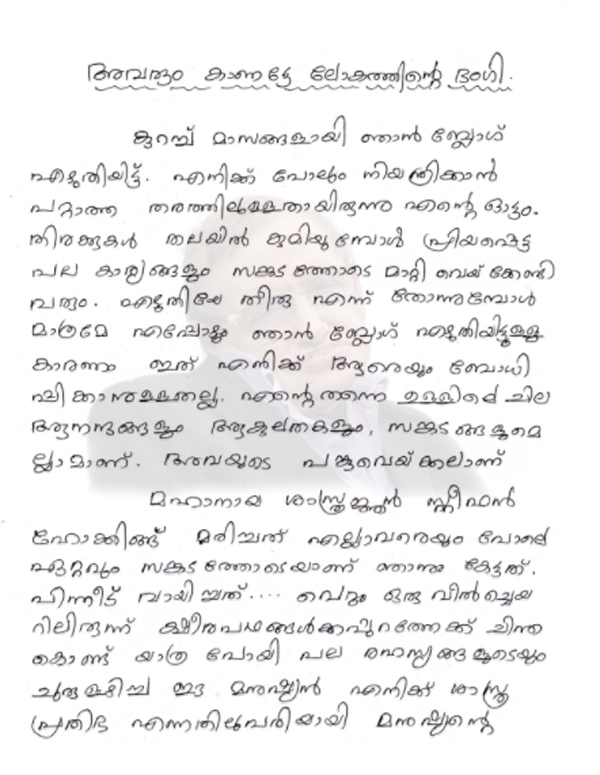 അവരും കാണട്ടേ ലോകത്തിന്റെ ഭംഗി.
കുറച്ച് മാസങ്ങളായി ഞാൻ ബ്ലോഗ്
എഴുതിയിട്ട്. എനിക്ക് പോലും നിയന്ത്രിക്കാൻ
പറ്റാത്ത തരത്തിലുള്ളതായിരുന്നു എന്റെ ഓട്ടം.
തിരക്കുകൾ തലയിൽ കുമിയുമ്പോൾ പ്രിയപ്പെട്ട
പല കാര്യങ്ങളും സങ്കടത്തോടെ മാറ്റി വെയ്ക്കേണ്ടി
വരും. എഴുതിയേ തീരൂ എന്ന് തോന്നുമ്പോൾ
മാത്രമേ എപ്പോഴും ഞാൻ ബ്ലോഗ് എഴുതിയിട്ടുള്ളൂ
കാരണം ഇത് എനിക്ക് ആരെയും ബോധി
പ്പിക്കാനുള്ളതല്ല. എന്റെ തന്നെ ഉള്ളിലെ ചില
ആനന്ദങ്ങളും ആകുലതകളും, സങ്കടങ്ങളുമെ
ല്ലാമാണ്. അവയുടെ പങ്കുവെയ്ക്കലാണ്
മഹാനായ ശാസ്ത്രജ്ഞൻ സ്റ്റീഫൻ
ഹോക്കിങ്ങ് മരിച്ചത് എല്ലാവരെയും പോലെ
ഏറ്റവും സങ്കടത്തോടെയാണ് ഞാനും കേട്ടത്.
പിന്നീട് വായിച്ചത്.... വെറും ഒരു വീൽച്ചെയ
റിലിരുന്ന് ക്ഷീരപഥങ്ങൾക്കപ്പുറത്തേക്ക് ചിന്ത
കൊണ്ട് യാത്ര പോയി പല രഹസ്യങ്ങളുടെയും
ചുരുളഴിച്ച ഈ മനുഷ്യൻ എനിക്ക് ശാസ്ത്ര
പ്രതിഭ എന്നതിലുപരിയായി മനുഷ്യന്റെ